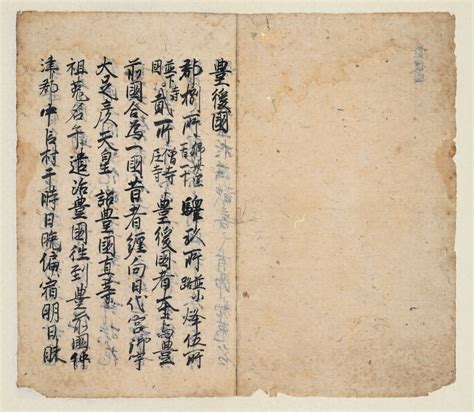 豊後國
郡捌所 百一十 驛玖所 並小路 烽伍所
並下國 寺貳所 僧寺尼寺 豊後國者本与豊
前國合為一國昔者纏向日代宮御宇
大足彦天皇 詔豊國直等
祖菟名手遣治豊國往到豊前國仲
津郡中臣村于時日晩僑宿明日昧